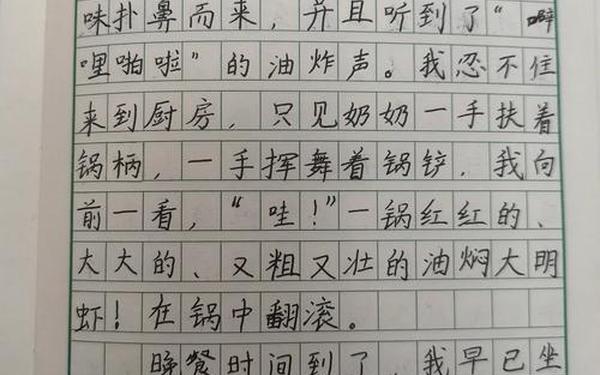 味扑鼻而来，并且听到了“噼
哩啪啦”的油炸声。我忍不住
来到厨房，只见奶奶一手扶着
锅柄，一手挥舞着锅铲，我向
前一看，“哇！”一锅红红的、
大大的、又粗又壮的油焖大明
虾！在锅中翻滚。
晚餐时间到了，我早已坐